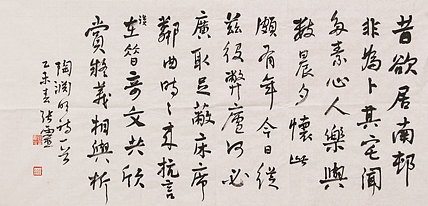 昔欲居南邨
非為卜其宅聞
多素心人樂與
數晨夕懷此
頗有年今日從
茲役弊廬何必
廣取足蔽床席
鄰曲時〻來抗言
談在昔奇文共欣
賞疑義相與析
陶淵明詩一首
乙未春